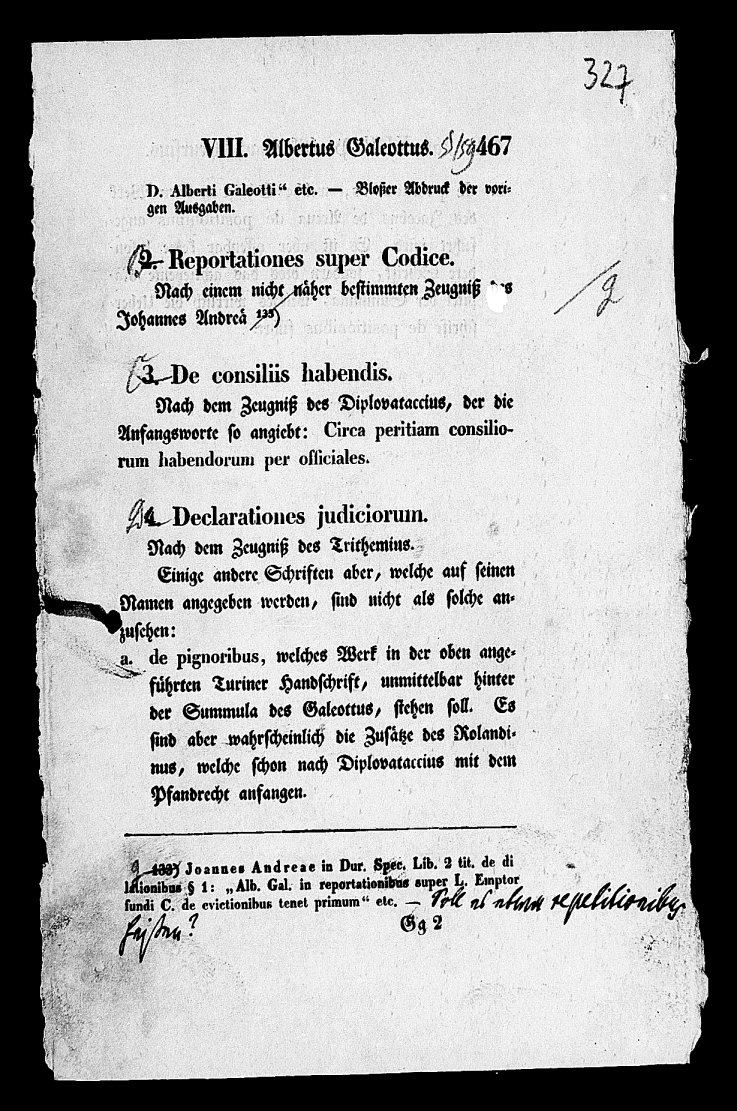 327
VIII. Albertus Galeottus. 467
D. Alberti Galeotti“ etc. — Bloßer Abdruck der vori-
gen Ausgaben.
2. Reportationes super Codice.
Nach einem nicht näher bestimmten Zeugniß
Johannes Andreä 133)
2
3. De consiliis habendis.
Nach dem Zeugniß des Diplovataccius, der die
Anfangsworte so angiebt: Circa peritiam consilio-
rum habendorum per officiales.
4. Declarationes judiciorum.
Nach dem Zeugniß des Trithemius.
Einige andere Schriften aber, welche auf seinen
Namen angegeben werden, sind nicht als solche an-
zusehen:
a. de pignoribus, welches Werk in der oben ange-
führten Turiner Handschrift, unmittelbar hinter
der Summula des Galeottus, stehen soll. Es
sind aber wahrscheinlich die Zusätze des Rolandi-
nus, welche schon nach Diplovataccius mit dem
Pfandrecht anfangen.
133) Joannes Andreae in Dur. Spec. Lib. 2 tit. de di
lationibus § 1: „Alb. Gal. in reportationibus super L. Emptor
fundi C. de evictionibus tenet primum“ etc. — Soll es etwa repetitionibus
heißen?
Gg 2